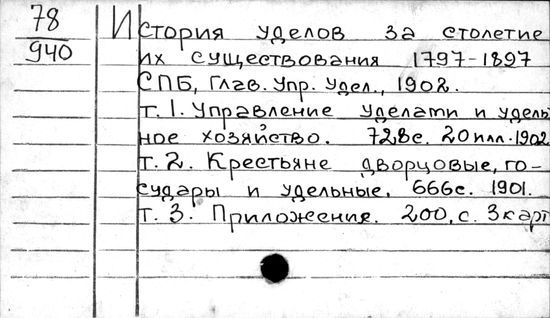 78
940
История уделов за столетие
их существования 1797-1897
СПБ, Глав. Упр. Удел., 1902.
т. 1. Управление уделати и удель
ное хозяйство. 728с. 20 илл. 1902
т. 2. Крестьяне дворцовые, го-
судары и удельные. 666с. 1901.
т. 3. Приложение. 200, с. 3 карт